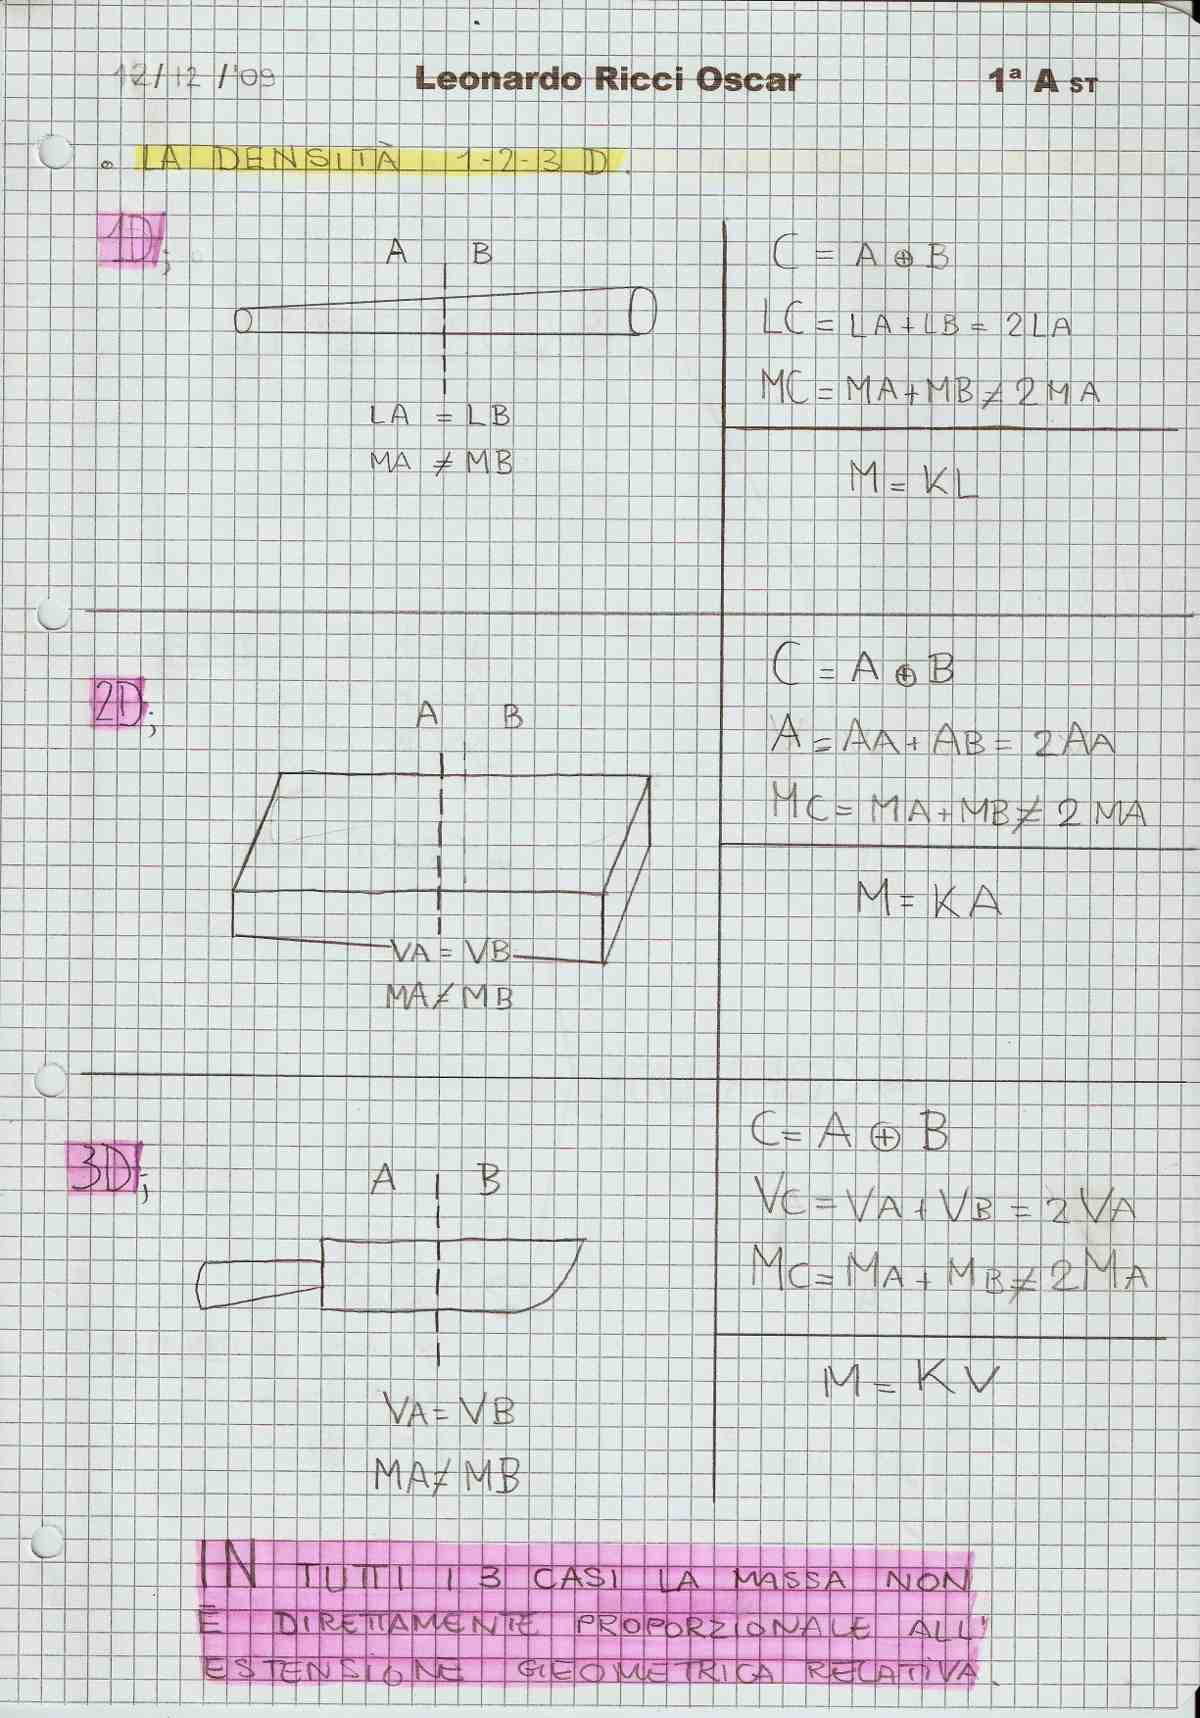 12/12/'09 Leonardo Ricci Oscar 1ª A ST
• LA DENSITÀ 1-2-3 D.
1D;
A B
LA = LB
MA ≠ MB
C = A ⊕ B
LC = LA + LB = 2LA
MC = MA + MB ≠ 2 MA
M = KL
2D;
A B
VA = VB
MA ≠ MB
C = A ⊕ B
A = AA + AB = 2AA
MC = MA + MB ≠ 2 MA
M = KA
3D;
A B
VA = VB
MA ≠ MB
C = A ⊕ B
VC = VA + VB = 2VA
MC = MA + MB ≠ 2MA
M = KV
IN TUTTI I 3 CASI LA MASSA NON
È DIRETTAMENTE PROPORZIONALE ALL'
ESTENSIONE GEOMETRICA RELATIVA.